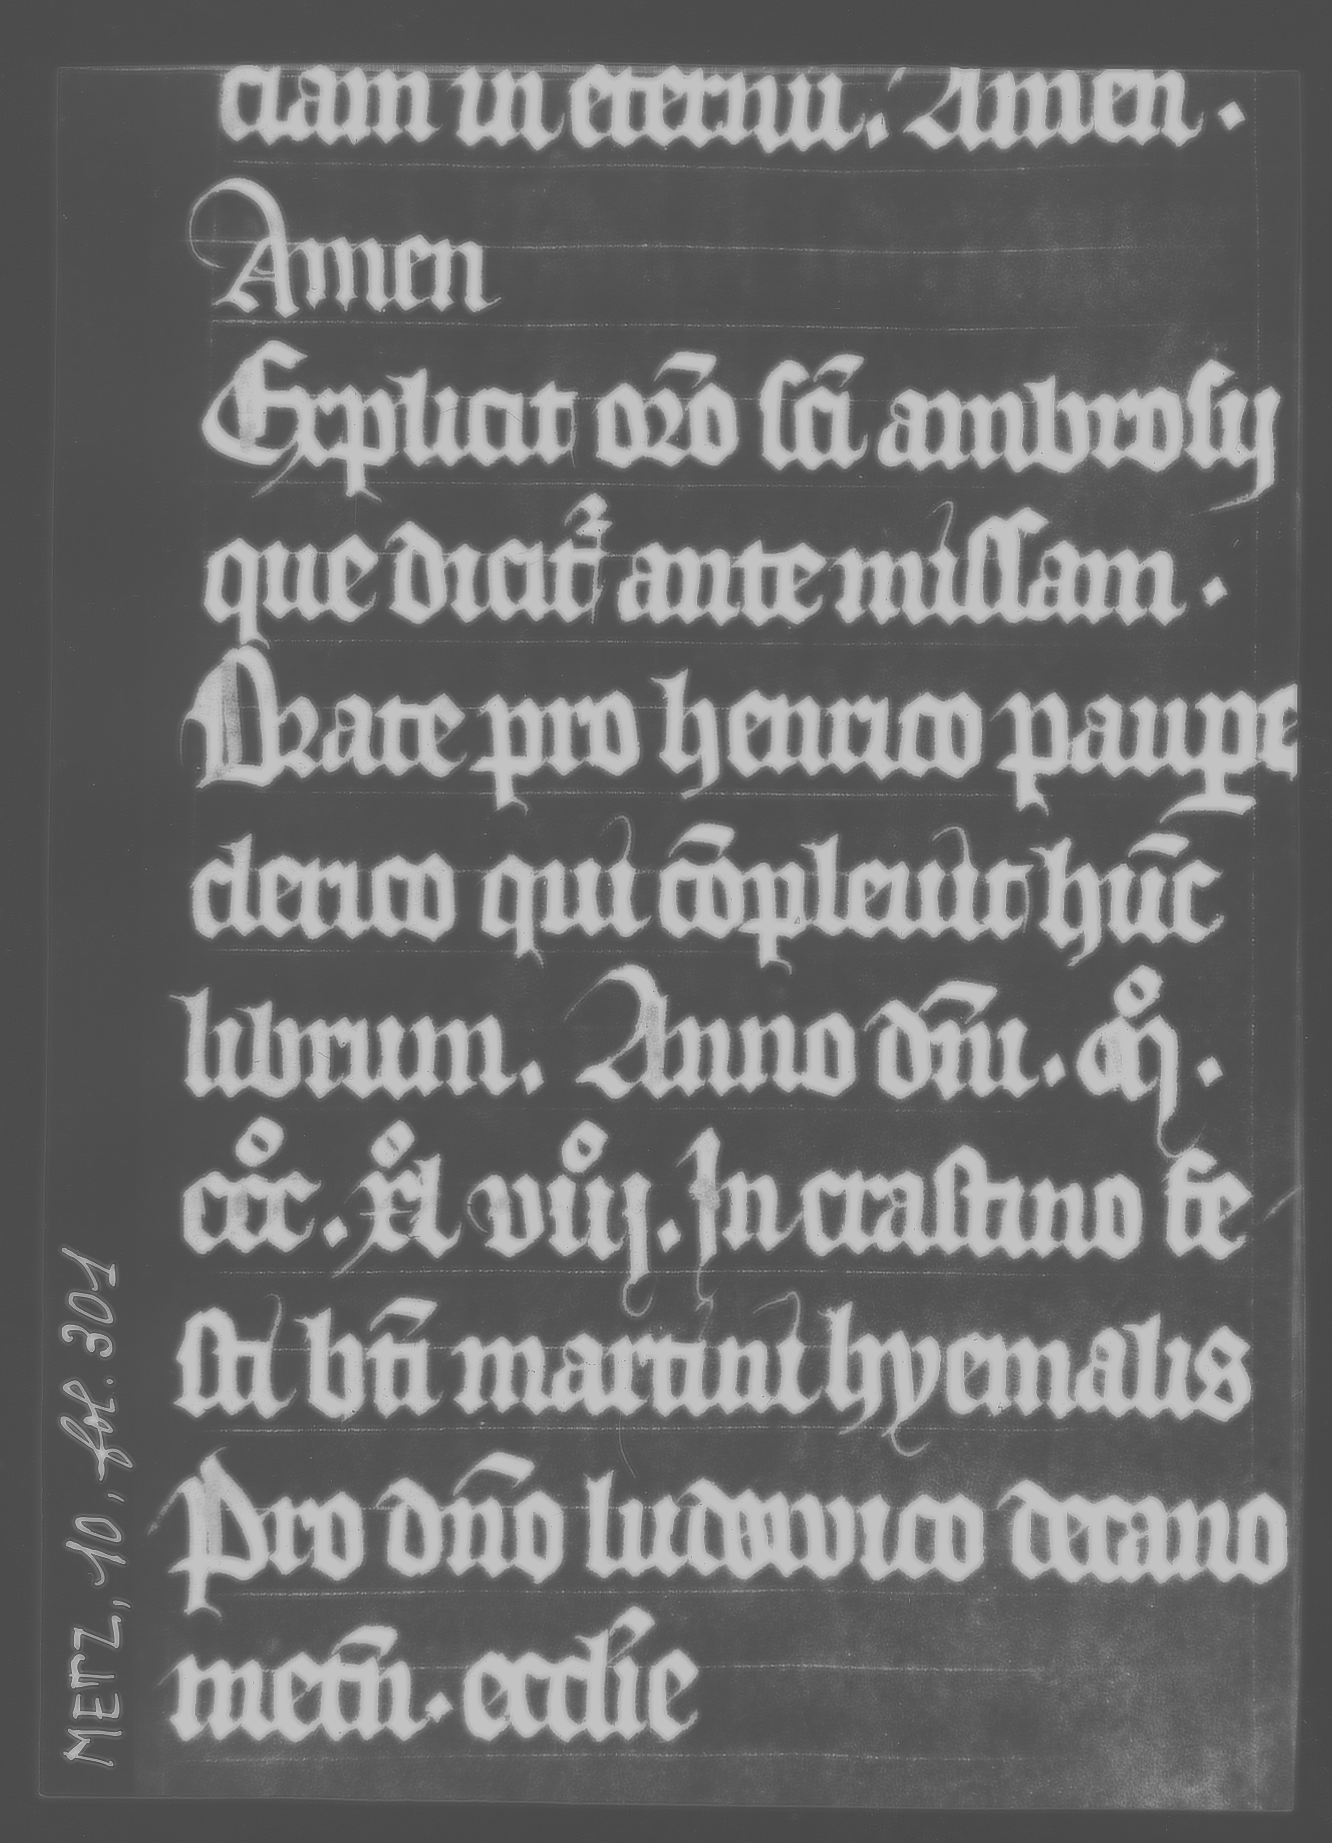 ciam in eternū. Amen.
Amen
Explicit or̄o sc̄i ambrosij
que dicit᷑ ante missam.
Orate pro henrico paup̱e
clerico qui cōpleuit hūc
librum. Anno dn̄i. mͦ.
cccͦ. xͦl viͦij. In crastino fe
sti bt̄i martini hyemalis
Pro dn̄o ludowico decano
metn̄. eccl̄ie
METZ, 10, fol. 301